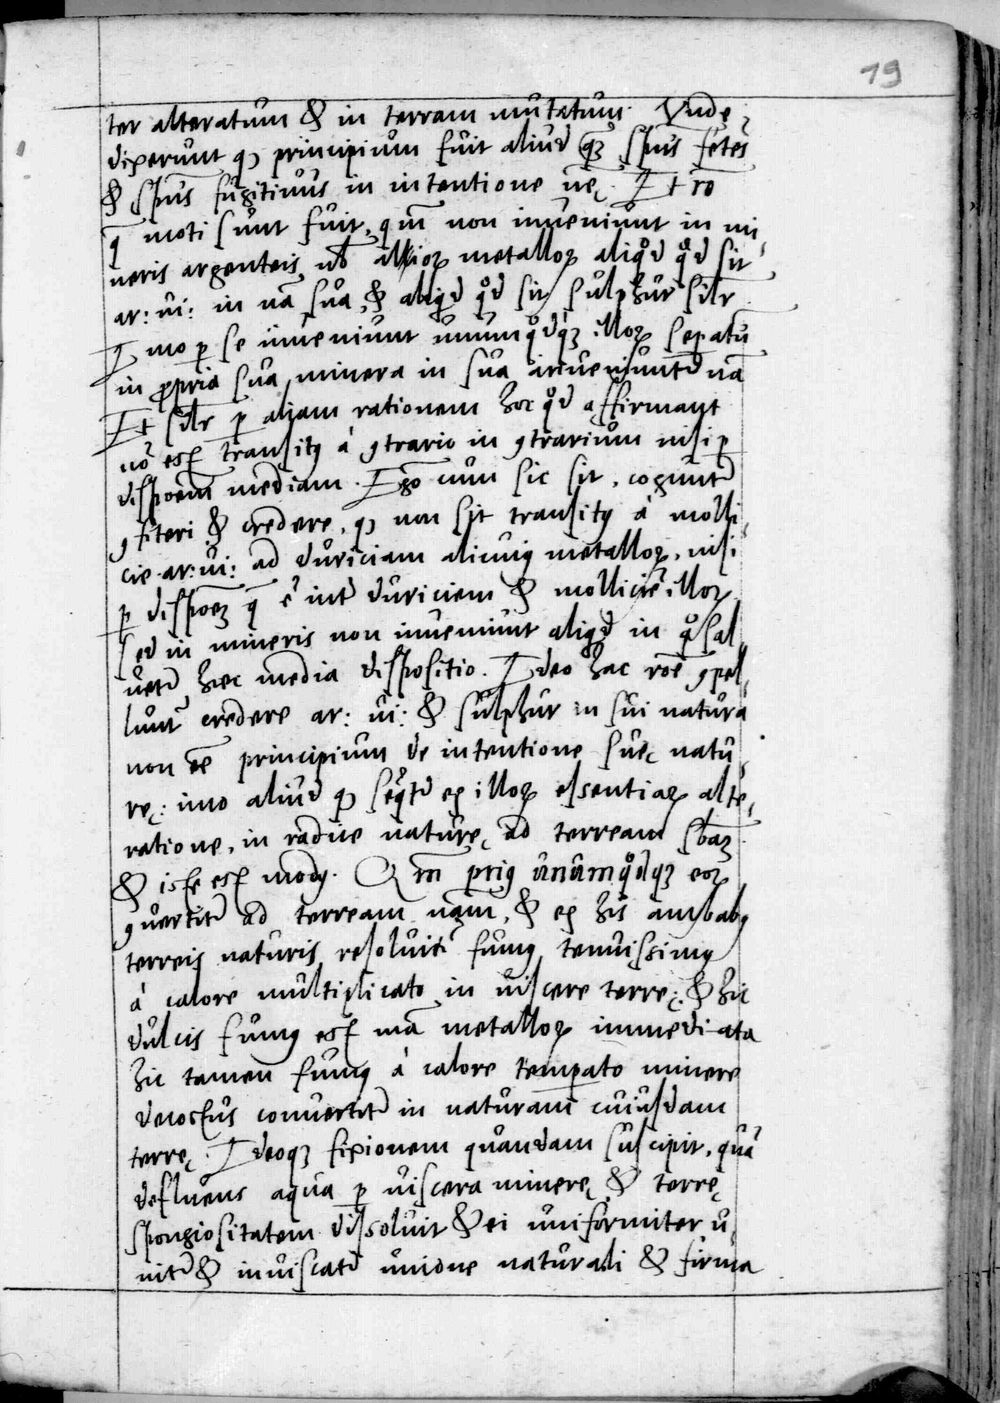 19
ter alteratum & in terram mutatum. Vnde
dixerunt qꝫ principium fuit aliud quā spūs fetēs
& spūs fugitiuus in intentione nę. Et rō
q̄ moti sunt fuit, qm̄ non inueniunt in mi
neris argenteis ul̄ alioꝝ metalloꝝ aliqͦd qͦd sit
ar: ui: in nā sua & aliqͦd qͦd sit sulphur silr̄
Imo ꝑ se inueniunt unumqͦdqꝫ illoꝝ sepatū
in ꝓpria sua minera in sua nā
Et silr̄ ꝑ aliam rationem hoc qͦd affirmant
nō est transitꝰ à ꝯtrario in ꝯtrarium nisi ꝑ
dispoēm mediam. Egō cum sic sit, coguntr̄
ꝯfiteri & credere, qꝫ non sit transitꝰ à molli
cie ar: ui: ad duriciam alicuiꝰ metalloꝝ, nisi
ꝑ dispoēꝫ q̄ ē intr̄ duriciem & molliciē illoꝝ
Sed in mineris non inueniunt aliqͦd in qͦ sal
uetr̄ hęc media dispositio. Ideo hac roē ꝯpel
luntr̄ credere ar: ui: & sulphur in sui natura
non eē principium de intentione suę natu
rę: imo aliud qꝫ seqͥtr̄ ex illoꝝ essentiaꝝ alte
ratione, in radice naturę ad terream sb̄aꝫ
& iste est modꝰ. Qm̄ priꝰ unumqͦdqꝫ eoꝝ
ꝯuertitr̄ ad terream nā̄m, & ex his ambabꝰ
terreis naturis resoluitr̄ fumꝰ tenuissimꝰ
à calore multiplicato in viscere terrę: & hic
dulcis fumꝰ est mā metalloꝝ immediata
hic tamen fumꝰ à calore temperato minere
decoctus convertitr̄ in naturam cuiusdam
terrę. Ideoqꝫ fixionem quandam suscipit, quā
defluens aqua ꝑ viscera minerę & terrę
spongiositatem dissoluit & ei uniformiter u
nitr̄ & inuiscatr̄ unione naturali & firma